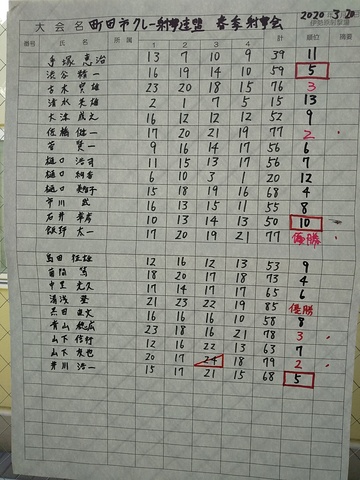 大会名 町田市クレー射撃連盟 春季射撃会 2020 3.20
番号 氏名 所属 1 2 3 4 計 順位 摘要
手塚 恵治 13 7 10 9 39 11
渋谷 16 19 14 10 59 5
古木 宏雄 23 20 18 15 76 3
清水 英雄 2 1 7 5 15 13
大津 16 12 12 12 52 9
佐藤 健一 17 20 21 19 77 2
菅 賢一 9 16 14 17 56 6
樋口 浩司 11 15 13 17 56 7
樋口 6 10 3 1 20 12
樋口 15 18 19 16 68 4
市川 武 16 13 15 11 55 8
石井 10 13 14 13 50 10
飯野 太一 17 20 19 21 77 優勝
島田 征雄 12 16 12 13 53 9
篤 18 20 17 18 73 4
中里 光久 17 14 17 17 65 6
湯浅 21 23 22 19 85 優勝
16 16 16 10 58 8
青山 23 18 16 21 78 3
山下 信行 12 16 22 13 63 7
山下 友也 20 17 24 18 79 2
井川 浩一 15 17 21 15 68 5